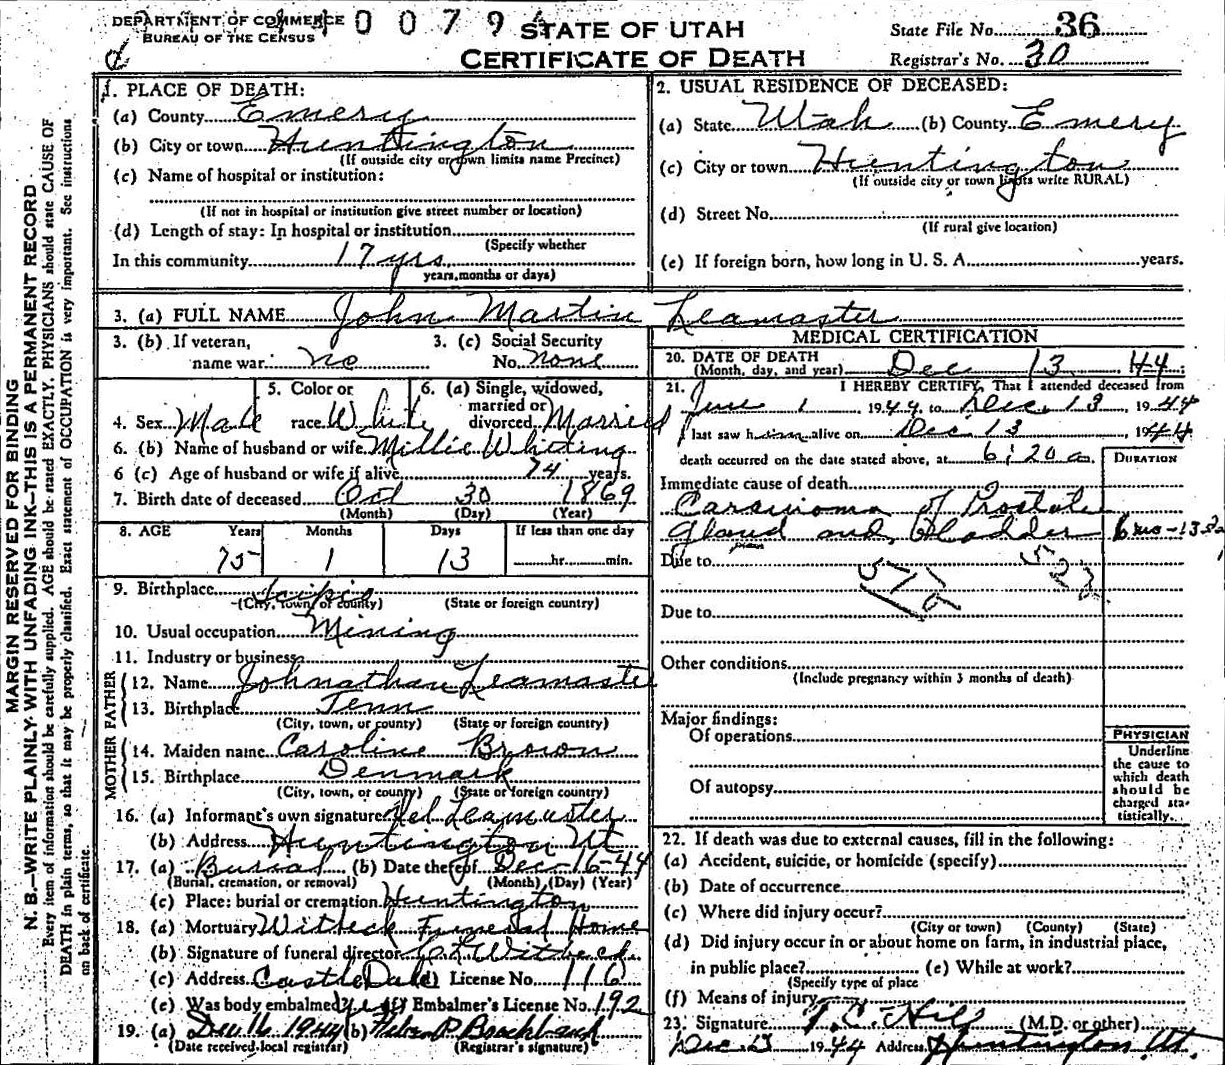 DEPARTMENT OF COMMERCE
BUREAU OF THE CENSUS
0 0 7 9
STATE OF UTAH
CERTIFICATE OF DEATH
State File No. 36
Registrar's No. 30
MARGIN RESERVED FOR BINDING
N. B.—WRITE PLAINLY WITH UNFADING INK—THIS IS A PERMANENT RECORD
Every item of information should be carefully supplied. AGE should be stated EXACTLY. PHYSICIANS should state CAUSE OF
DEATH in plain terms, so that it may be properly classified. Exact statement of OCCUPATION is very important. See instructions
on back of certificate.
1. PLACE OF DEATH:
(a) County Emery
(b) City or town Huntington
(If outside city or town limits name Precinct)
(c) Name of hospital or institution:
(If not in hospital or institution give street number or location)
(d) Length of stay: In hospital or institution
(Specify whether
In this community 17 yrs
years, months or days)
2. USUAL RESIDENCE OF DECEASED:
(a) State Utah (b) County Emery
(c) City or town Huntington
(If outside city or town limits write RURAL)
(d) Street No.
(If rural give location)
(e) If foreign born, how long in U. S. A. years.
3. (a) FULL NAME John Martin Leamaster
3. (b) If veteran,
name war no
3. (c) Social Security
No. none
4. Sex Male
5. Color or
race White
6. (a) Single, widowed,
married or
divorced Married
6. (b) Name of husband or wife Millie Whiting
6 (c) Age of husband or wife if alive 74 years.
7. Birth date of deceased Oct 30 1869
(Month) (Day) (Year)
8. AGE Years Months Days If less than one day
75 1 13 hr. min.
9. Birthplace Scipio
(City, town, or county) (State or foreign country)
10. Usual occupation Mining
11. Industry or business
FATHER
12. Name Johnathan Leamaster
13. Birthplace Tenn
(City, town, or county) (State or foreign country)
MOTHER
14. Maiden name Caroline Brown
15. Birthplace Denmark
(City, town, or county) (State or foreign country)
16. (a) Informant's own signature Leamaster
(b) Address Huntington Ut
17. (a) Burial (b) Date thereof Dec-16-44
(Burial, cremation, or removal) (Month) (Day) (Year)
(c) Place: burial or cremation Huntington
18. (a) Mortuary Witbeck Funeral Home
(b) Signature of funeral director Witbeck
(c) Address Castle Dale (d) License No. 116
(e) Was body embalmed? yes (f) Embalmer's License No. 192
19. (a) Dec 16 1944 (b)
(Date received local registrar) (Registrar's signature)
MEDICAL CERTIFICATION
20. DATE OF DEATH
(Month, day, and year) Dec 13 44
21. I HEREBY CERTIFY, That I attended deceased from
June 1 1944 to Dec. 13 1944
I last saw him alive on Dec. 13 1944
death occurred on the date stated above, at 6:20 a.
DURATION
Immediate cause of death
Carcinoma of Prostate
Gland and Bladder 6 mo-13
Due to
Due to
Other conditions
(Include pregnancy within 3 months of death)
Major findings:
Of operations
Of autopsy
PHYSICIAN
Underline
the cause to
which death
should be
charged sta-
tistically.
22. If death was due to external causes, fill in the following:
(a) Accident, suicide, or homicide (specify)
(b) Date of occurrence
(c) Where did injury occur?
(City or town) (County) (State)
(d) Did injury occur in or about home on farm, in industrial place,
in public place? (e) While at work?
(Specify type of place
(f) Means of injury
23. Signature T. C. Hill (M.D. or other)
Dec 13 1944 Address Huntington, Ut.